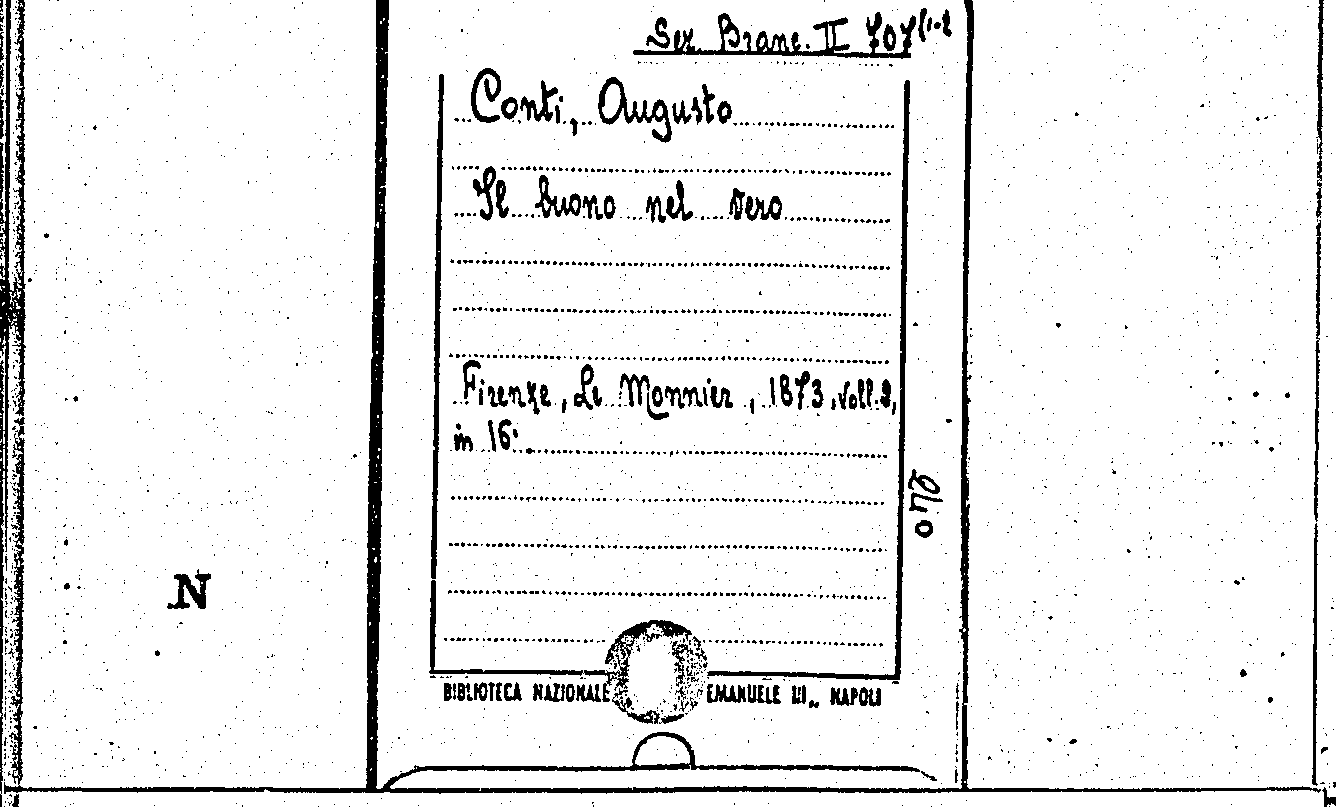 Sez. Branc. II 707(1-2
Conti, Augusto
Il buono nel vero
Firenze, Le Monnier, 1873, voll. 2,
in 16°.
N
BIBLIOTECA NAZIONALE EMANUELE III„ NAPOLI